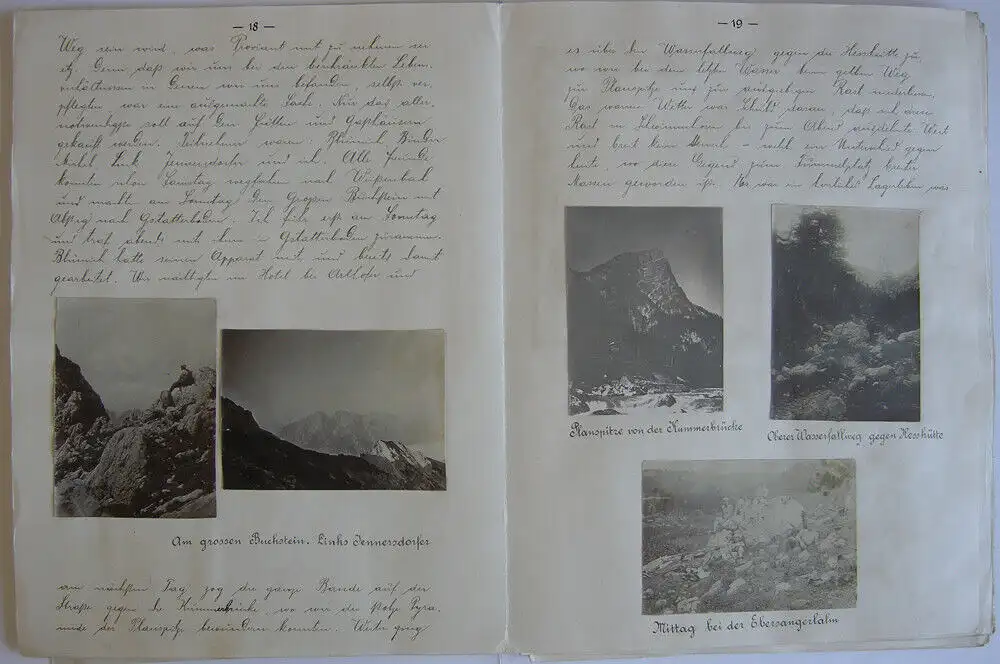 — 18 —
Weg sein wird, was Proviant mit zu nehmen sei
etz. Denn daß wir uns bei den beschränkten Leben.
verhältnissen in denen wir uns befanden, selbst ver
pflegten, war eine ausgemachte Sache. Nur das aller.
notwendigste soll auf den Hütten und Gasthäusern
gekauft werden. Teilnehmer waren: Blümich, Binder
Link, Jennersdorfer und ich. Alle
konnten schon Samstag wegfahren nach Weißenbach
und machten am Sonntag den Großen Buchstein mit
Abstieg nach Gstatterboden. Ich fuhr erst am Sonntag
und traf abends mit ihnen in Gstatterboden zusammen.
Blümich hatte seinen Apparat mit und bereits damit
gearbeitet. Wir nächtigten im Hotel bei und
Am grossen Buchstein. Links Jennersdorfer
am nächsten Tag zog die ganze Bande auf der
Straße gegen die Kummerbrücke, wo wir die stolze Pyra.
mide der Planspitze bewundern konnten. Weiter ging
— 19 —
es über den Wasserfallweg gegen die Hesshütte zu,
wo wir bei dem letzten Wasser beim gelben Weg
zur Planspitze uns zur ausgiebigen Rast niederließen.
Das warme Wetter war Schuld daran, daß sich diese
Rast im bis zum Abend ausdehnte. Weit
und breit kein Mensch – welch ein Unterschied gegen
heute, wo diese Gegend zum Tummelplatz breiter
Massen geworden ist. Es war ein herrliches Lagerleben was
Planspitze von der Kummerbrücke
Oberer Wasserfallweg gegen Hesshütte
Mittag bei der Ebersangerlalm